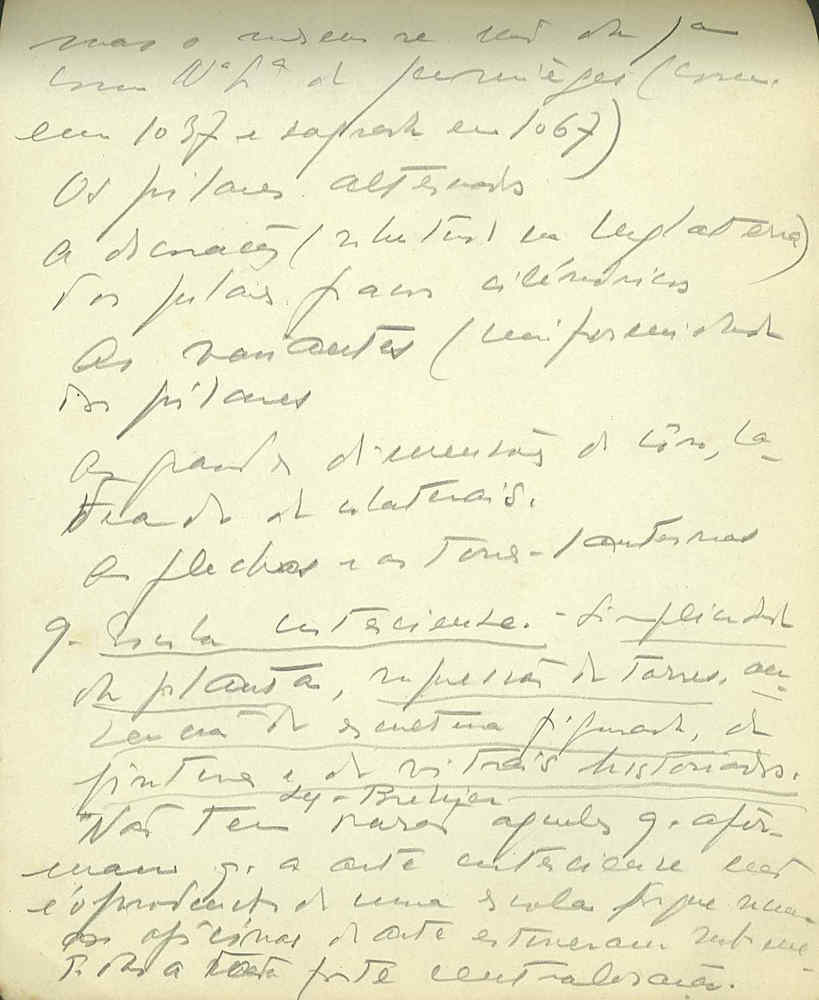 mas o mesmo se não dá já
com Nª Sª de Jumièges (com.
em 1037 e sagrada em 1067)
Os pilares alternados
A decoração ( em Inglaterra)
dos pilares cilíndricos
As variantes (uniformidade
dos pilares
As grandes dimensões do côro, 
 colaterais.
As flechas e as torres-lanternas
9. Escola cisterciense. - Simplicidade
de planta, supressão de torres, au-
sencia de escultura figurada, de
pintura e de vitrais historiados.
Bréhier
"Não tem razão aqueles q. afir-
mam q. a arte cisterciense não
é o producto de uma escola porque nun-
ca oficinas de arte estiveram subme-
tidas a tão forte centralização.